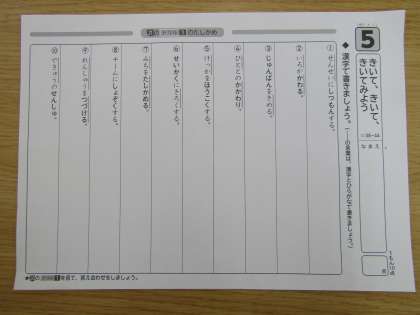 5
きいて、きいて、
きいてみよう
なまえ
1もん10点
点
◆漢字で書きましょう。(――の言葉は、漢字とひらがなで書きましょう。)
① せんせいにしつもんする。
② いろがかわる。
③ じゅんばんをきめる。
④ ひととのかかわり。
⑤ けっかをほうこくする。
⑥ せいかくにきろくする。
⑦ みちをたしかめる。
⑧ チームにしょぞくする。
⑨ れんしゅうをつづける。
⑩ できゅうのせんしゅ。
のたしかめ
を見て、答え合わせをしましょう。